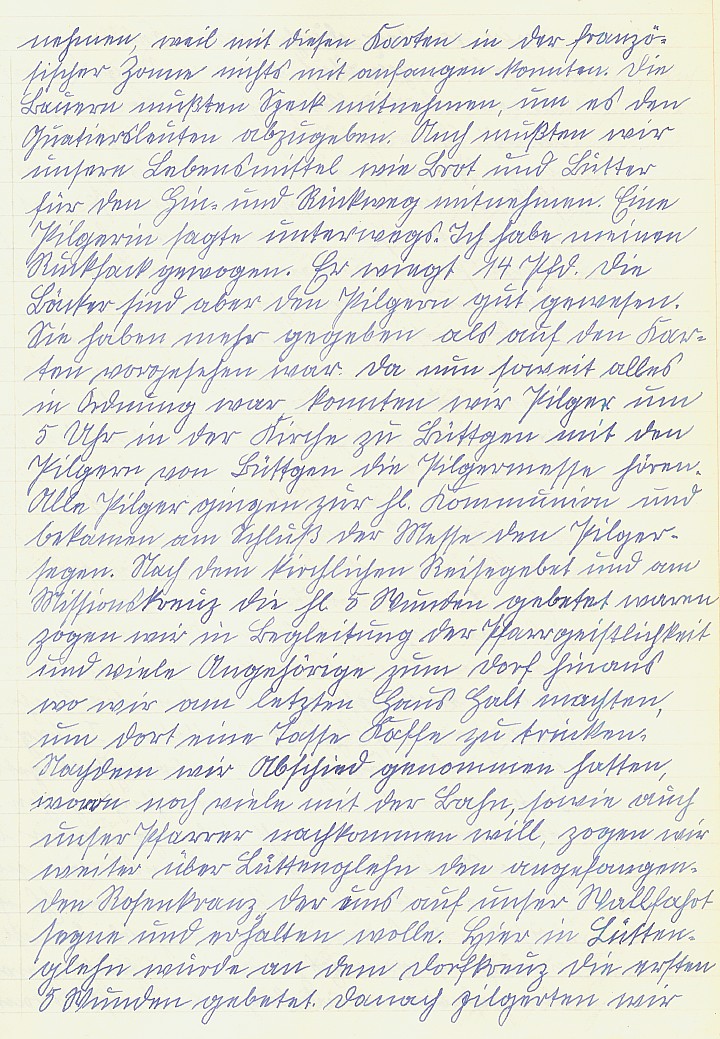 nehmen, weil mit diesen Karten in der franzö-
sischer Zonne nichts mit anfangen konnten. Die
Bauern mußten Speck mitnehmen, um es den
Quatiersleuten abzugeben. Auch mußten wir
unsere Lebensmittel wie Brot und Butter
für den Hin- und Rückweg mitnehmen. Eine
Pilgerin sagte unterwegs. Ich habe meinen
Rucksack gewogen. Er wiegt 14 Pfd. Die
Bäcker sind aber den Pilgern gut gewesen.
Sie haben mehr gegeben als auf den Kar-
ten vorgesehen war. Da nun soweit alles
in Ordnung war konnten wir Pilger um
5 Uhr in der Kirche zu Büttgen mit den
Pilgern von Büttgen die Pilgermesse hören.
Alle Pilger gingen zur hl. Kommunion und
bekamen am Schluß der Messe den Pilger-
segen. Nach dem kirchlichen Reisegebet und am
Missionskreuz die hl 5 Wunden gebetet waren
zogen wir in Begleitung der Pfarrgeistlichkeit
und viele Angehörige zum Dorf hinaus
wo wir am letzten Haus Halt machten,
um dort eine Tasse Kaffe zu trinken.
Nachdem wir Abschied genommen hatten,
woron noch viele mit der Bahn, sowie auch
unser Pfarrer nachkommen will, zogen wir
weiter über Lüttenglehn den angefangen-
den Rosenkranz der uns auf unser Wallfahrt
segne und erhalten wolle. Hier in Lütten-
glehn wurde an dem Dorfkreuz die ersten
5 Wunden gebetet. Danach pilgerten wir